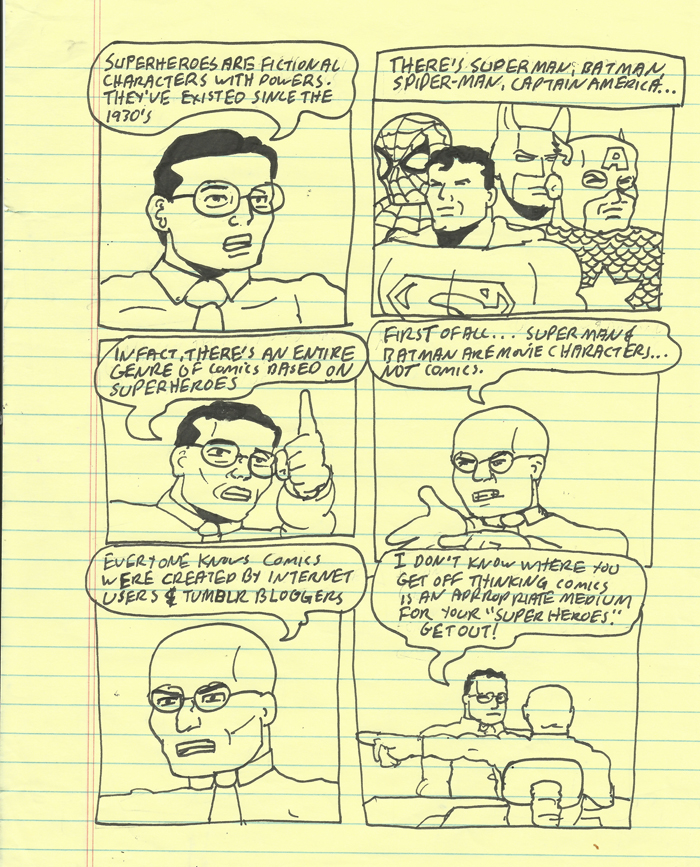 SUPERHEROES ARE FICTIONAL
CHARACTERS WITH POWERS.
THEY'VE EXISTED SINCE THE
1930'S
THERE'S SUPERMAN, BATMAN,
SPIDER-MAN, CAPTAIN AMERICA...
A
S
IN FACT, THERE'S AN ENTIRE
GENRE OF COMICS BASED ON
SUPERHEROES
FIRST OF ALL... SUPERMAN &
BATMAN ARE MOVIE CHARACTERS...
NOT COMICS.
EVERYONE KNOWS COMICS
WERE CREATED BY INTERNET
USERS & TUMBLR BLOGGERS
I DON'T KNOW WHERE YOU
GET OFF THINKING COMICS
IS AN APPROPRIATE MEDIUM
FOR YOUR "SUPERHEROES."
GET OUT!